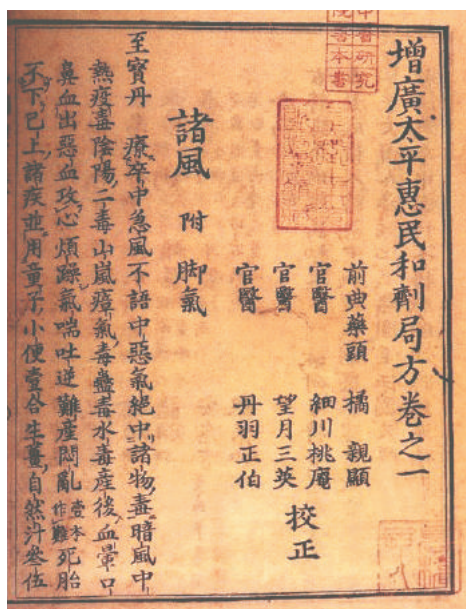 中醫研究
院善本書
增廣太平惠民和劑局方卷之一
前典藥頭 橘 親顯
官醫 細川桃庵
官醫 望月三英
官醫 丹羽正伯
校正
諸風 附 脚氣
至寶丹 療卒中急風不語中惡氣絶中諸物毒暗風中
熱疫毒陰陽二毒山嵐瘴氣毒蠱毒水毒產後血暈口
鼻血出惡血攻心煩躁氣喘吐逆難產悶亂壹本作難死胎
不下已上諸疾並用童子小便壹合生薑自然汁叁伍